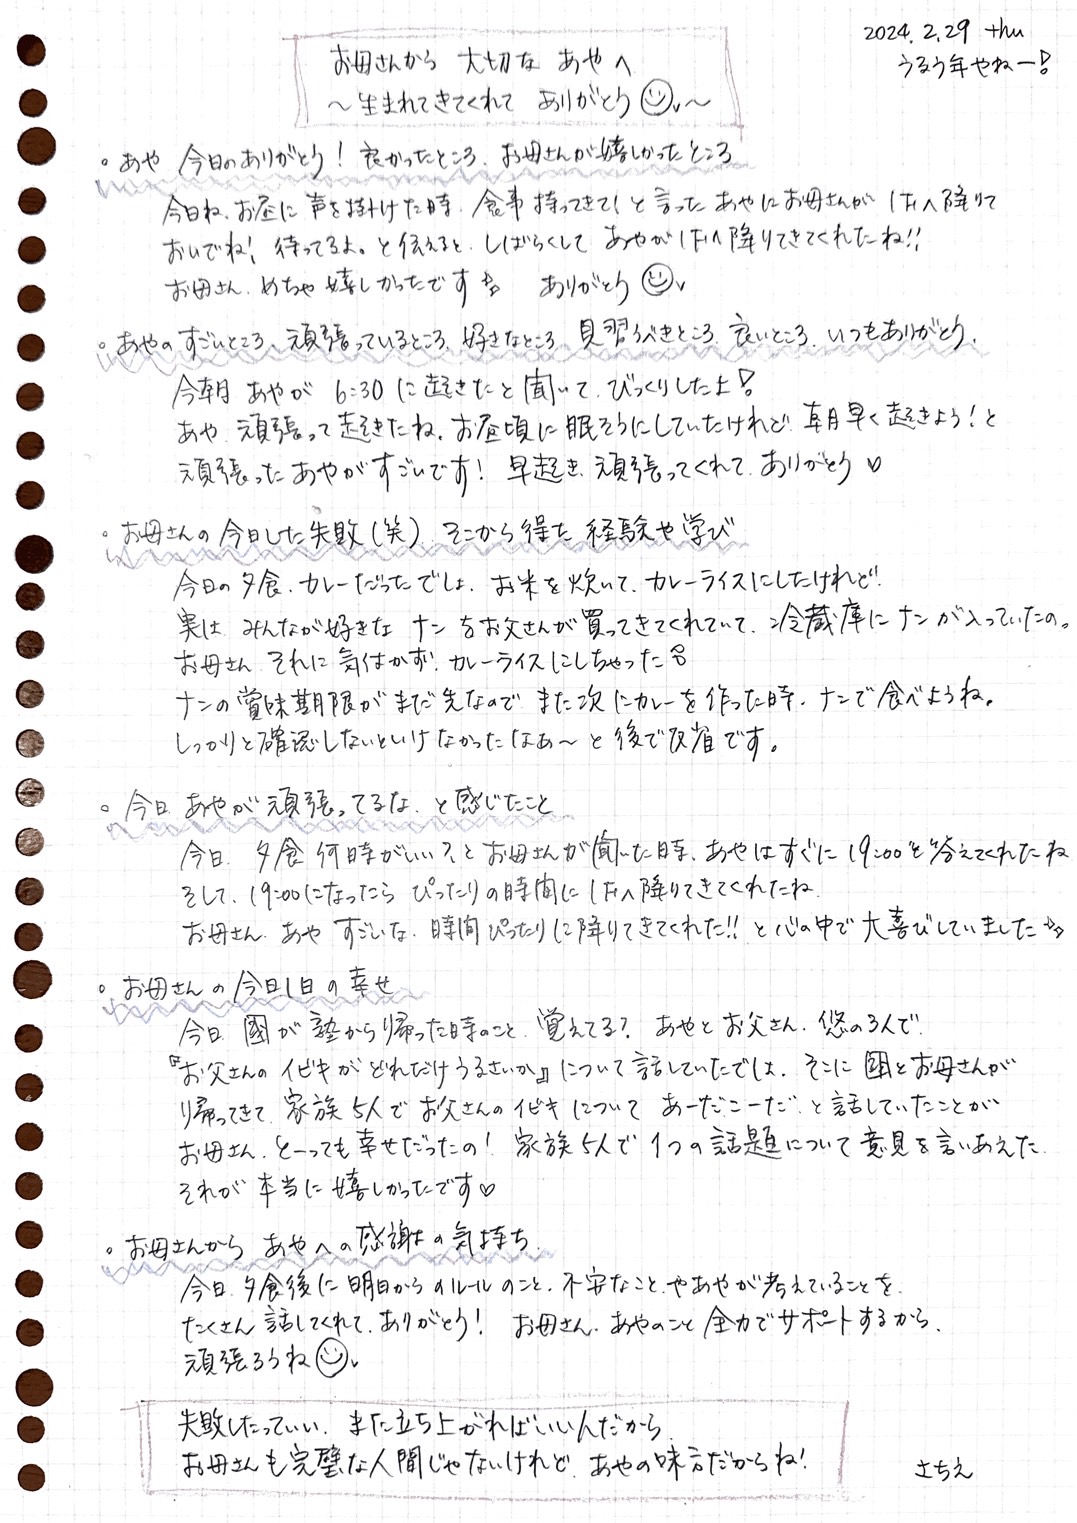 2024. 2. 29 thu
うるう年やねー!
お母さんから 大切な あやへ
～生まれてきてくれて ありがとう ～
あや 今日のありがとう! 良かったところ、お母さんが嬉しかったところ
今日ね、お昼に 声を掛けた時、食事持ってきて!と言った あやにお母さんが 1Fへ降りて
おいでね! 待ってるよ。と伝えると、しばらくして あやが1Fへ降りてきてくれたね!!
お母さん、めちゃ嬉しかったです ありがとう
あやの すごいところ、頑張っているところ、好きなところ、見習うべきところ、良いところ、いつもありがとう、
今朝 あやが 6:30 に起きたと聞いて、びっくりしたよ!
あや、頑張って起きたね、お昼頃に眠そうにしていたけれど、朝早く起きよう!と
頑張ったあやがすごいです! 早起き、頑張ってくれて、ありがとう♡
お母さんの今日した失敗(笑)、そこから得た 経験や学び
今日の夕食、カレーだったでしょ、お米を炊いて、カレーライスにしたけれど!
実は みんなが好きな ナンをお父さんが買ってきてくれていて、冷蔵庫にナンが入っていたの。
お母さん それに気付かず、カレーライスにしちゃった
ナンの賞味期限がまだ先なので また次にカレーを作った時、ナンで食べようね。
しっかりと確認しないといけなかったなあ～と後で反省です。
今日 あやが頑張ってるな、と感じたこと
今日、夕食何時がいい?とお母さんが聞いた時、あやはすぐに"19:00"と答えてくれたね
そして、19:00になったら ぴったりの時間に1Fへ降りてきてくれたね、
お母さん、あや すごいな、時間ぴったりに降りてきてくれた!! と心の中で大喜びしていました
お母さんの今日1日の幸せ
今日 圏が 塾から帰った時のこと、覚えてる? あやとお父さん、悠の3人で、
『お父さんのイビキがどれだけうるさいか』について話していたでしょ、そこに 圏とお母さんが
帰ってきて、家族5人でお父さんのイビキについて あーだこーだ、と話していたことが
お母さん、とーっても幸せだったの! 家族5人で 1つの話題について意見を言いあえた、
それが本当に嬉しかったです♡
お母さんから あやへの感謝の気持ち、
今日、夕食後に明日からのルールのこと、不安なこと、やあやが考えていることを、
たくさん話してくれて、ありがとう! お母さん、あやのこと全力でサポートするから、
頑張ろうね
失敗したっていい、また立ち上がればいいんだから、
お母さんも完璧な人間じゃないけれど、あやの味方だからね!
さちえ